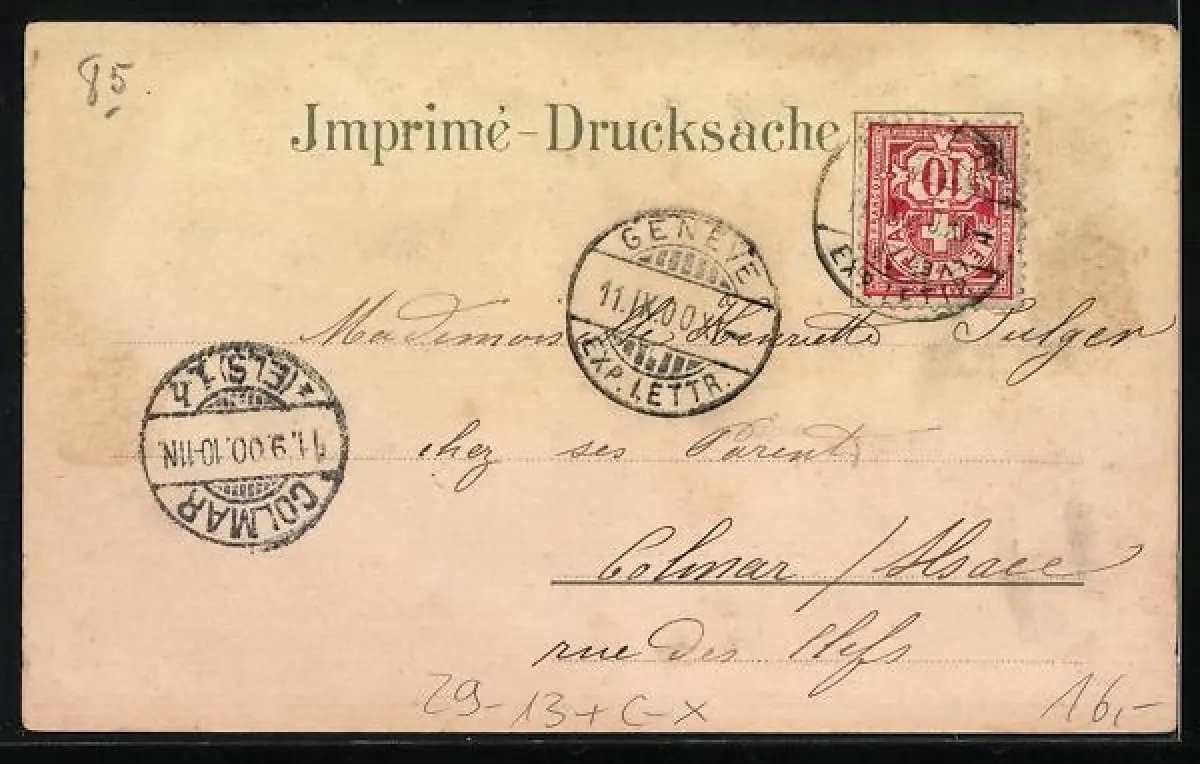 85
Imprimé-Drucksache
10
HELVETIA
EXP. LETTR.
GENÈVE
11.IX.00.X
EXP. LETTR.
Mademoiselle Henriette Sulger
chez ses Parents
Colmar / Alsace
rue des Clefs
COLMAR
11.9.00.10-11N.
* (ELS) 1. h
29-13+C-X
16,-